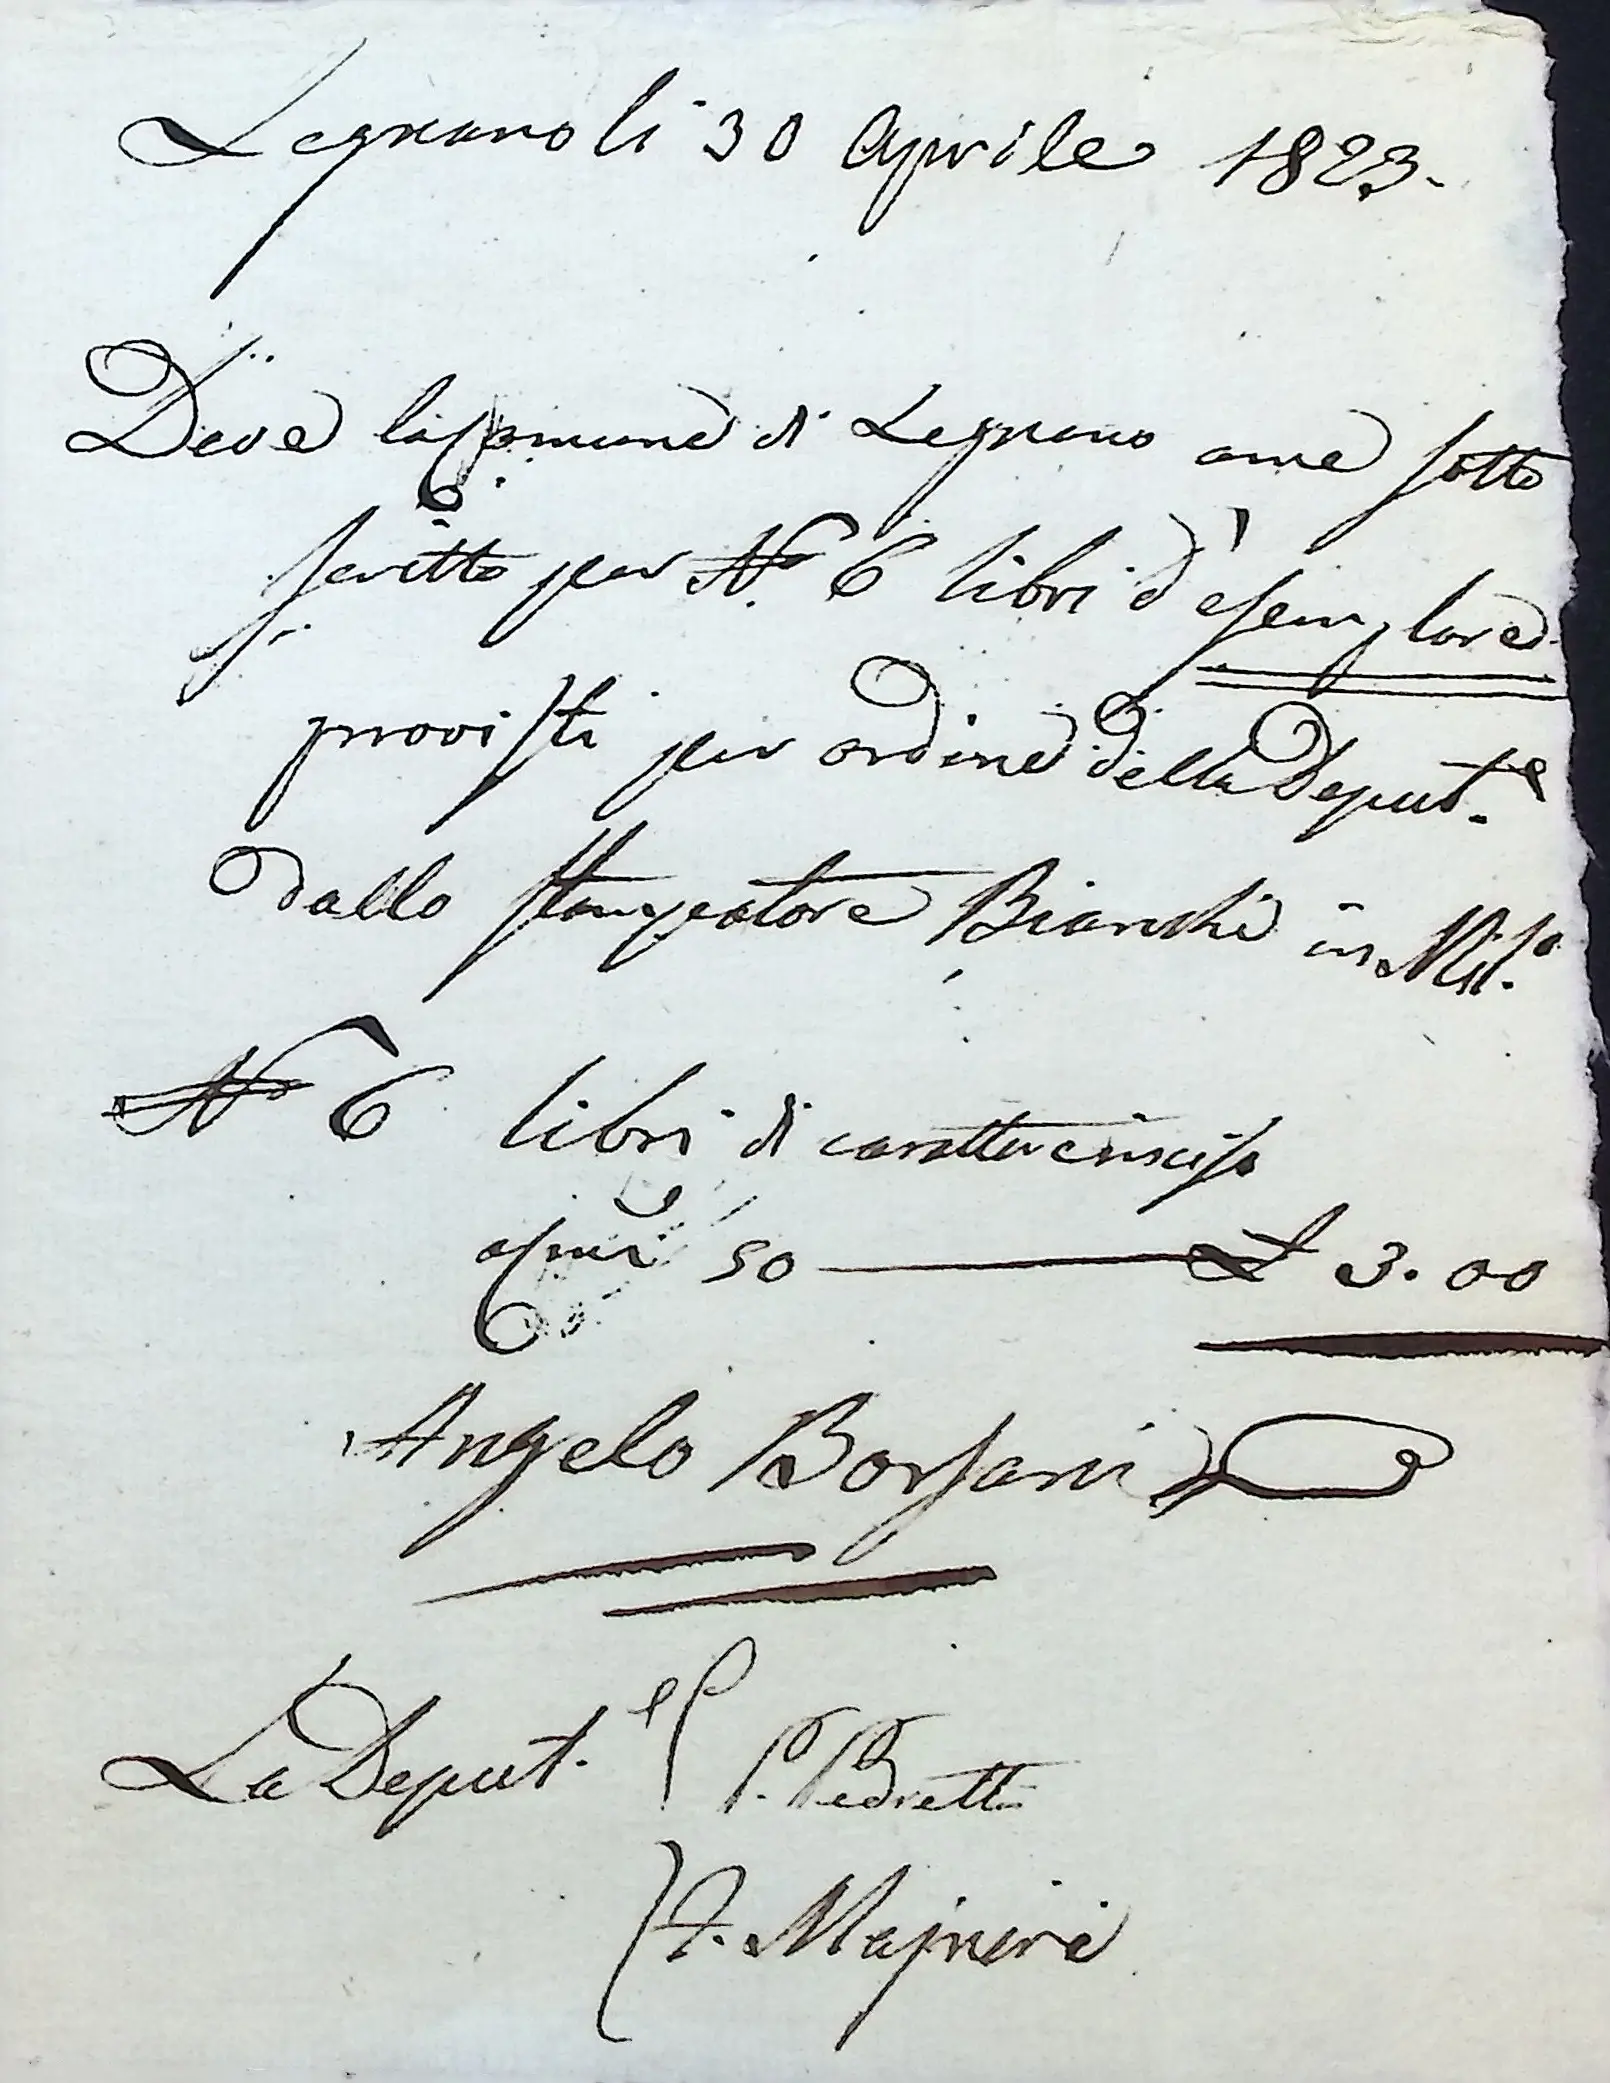 Legnano li 30 Aprile 1823.
Deve la Comune di Legnano a me sotto
scritto per N.º 6 libri d'esemplare
provisti per ordine della Deput.e
dallo stampatore Bianchi in Mil.º
Nº 6 libri di carattere inciso
a 50 £ 3.00
Angelo Borsani
La Deput.e P. Pedretti
F. Majneri